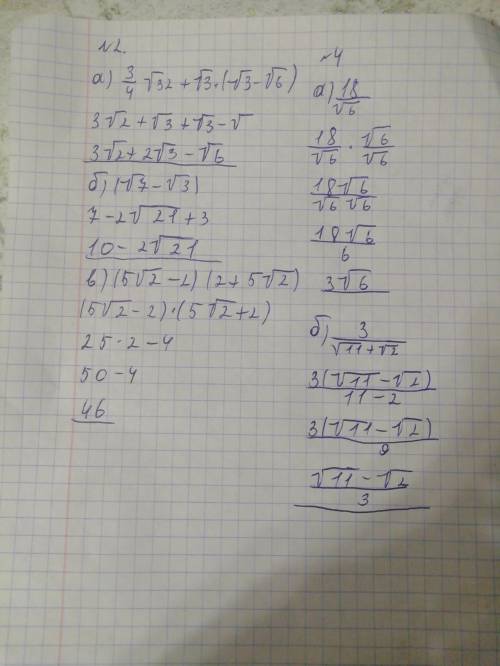 №2.
а) 3/4 √32 + √3 · (√3 − √6)
3√2 + √3 + √3 − √
3√2 + 2√3 − √6
б) (√7 − √3)
7 − 2√21 + 3
10 − 2√21
в) (5√2 − 2) (2 + 5√2)
(5√2 − 2) · (5√2 + 2)
25 · 2 − 4
50 − 4
46
№4
а) 18/√6
18/√6 · √6/√6
18√6/√6 √6
18√6/6
3√6
б) 3/√11 + √2
3(√11 − √2)/11 − 2
3(√11 − √2)/9
√11 − √2/3